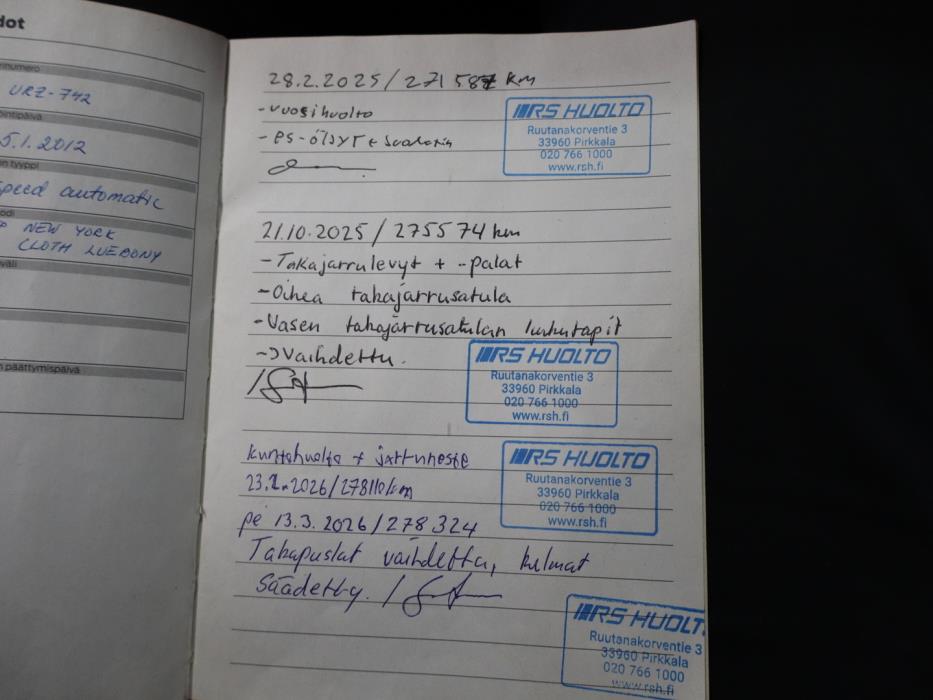 dot
URZ-742
5.1.2012
n tyyppi
speed automatic
odi
NEW YORK
CLOTH LUEBONY
n päättymispäivä
28.2.2025 / 271587 km
- Vuosihuolto
RS HUOLTO
Ruutanakorventie 3
33960 Pirkkala
020 766 1000
www.rsh.fi
21.10.2025 / 275574 km
- Takajarrulevyt + -palat
- Oikea takajarrusatula
- Vasen takajarrusatulan liukutapit
-> Vaihdettu.
RS HUOLTO
Ruutanakorventie 3
33960 Pirkkala
020 766 1000
www.rsh.fi
kuntohuolto + jarruneste
23.1.2026/278110km
RS HUOLTO
Ruutanakorventie 3
33960 Pirkkala
020 766 1000
www.rsh.fi
pe 13.3.2026/278 324
Takapuslat vaihdettu, kulmat
säädetty. /
RS HUOLT
Ruutanakorventie 3
33960 Pirkkala
020 766 1000
www.rsh.fi